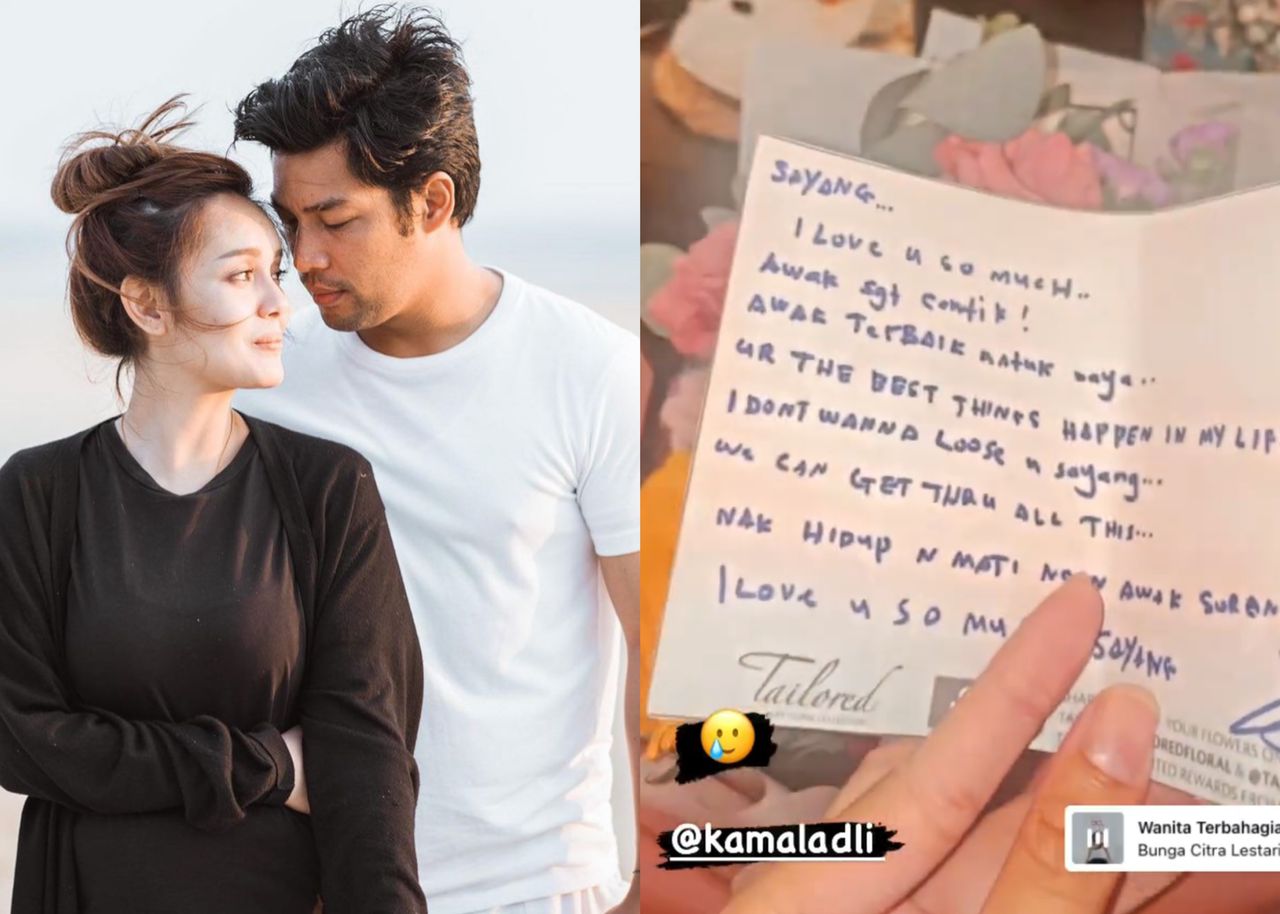 SAYANG...
I Love u so much..
Awak sgt cantik!
AWAK TERBAIK untuk saya..
UR THE BEST THINGS HAPPEN IN MY LIF
I DONT WANNA LOOSE u sayang...
We CAN GET THRU ALL THIS...
NAK HIDUP N MATI AWAK
I Love u so mu SAYANG
Tailored
YOUR FLOWERS
@kamaladli
Wanita Terbahagia
Bunga Citra Lestari